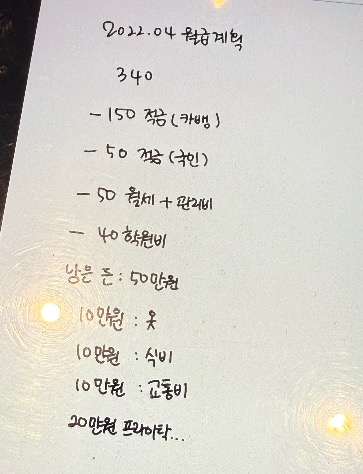 2022.04 월급계획
340
- 150 적금 (카뱅)
- 50 적금 (국민)
- 50 월세 + 관리비
- 40 학원비
남은 돈 : 50만원
10만원 : 옷
10만원 : 식비
10만원 : 교통비
20만원 프라이탁...